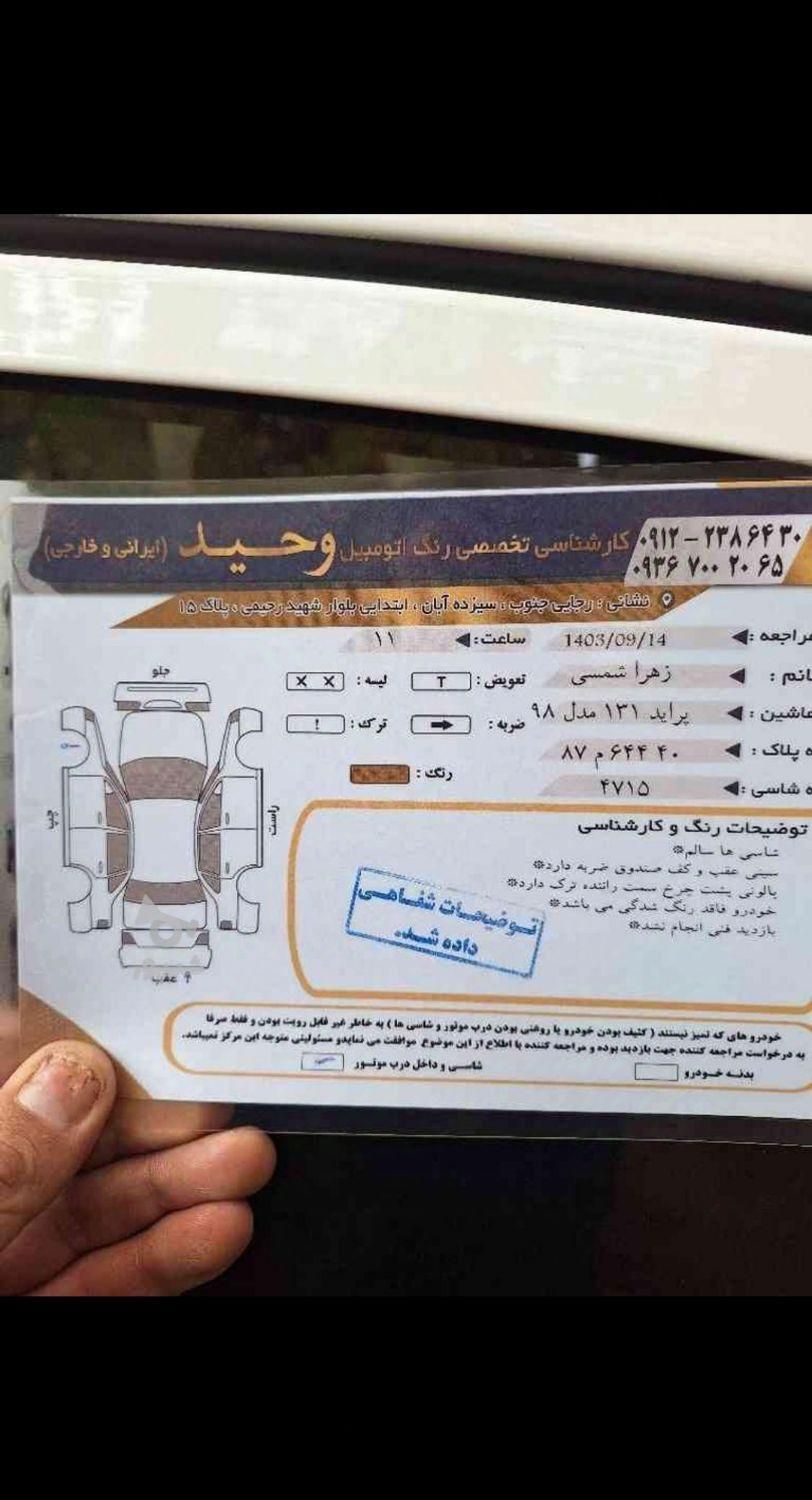 کارشناسی تخصصی رنگ اتومبیل وحید (ایرانی و خارجی)
۰۹۱۲ - ۲۳۸ ۶۴ ۳۰
۰۹۳۶ ۷۰۰ ۲۰ ۶۵
نشانی : رجایی جنوب ، سیزده آبان ، ابتدایی بلوار شهید رحیمی ، پلاک ۱۵
1403/09/14
ساعت : ۱۱
زهرا شمسی
پراید ۱۳۱ مدل ۹۸
پلاک : ۴۰ ۶۴۴ م ۸۷
شاسی : ۴۷۱۵
تعویض : T
لیسه : X X
ضربه :
ترک : !
رنگ :
جلو
چپ
راست
عقب
توضیحات رنگ و کارشناسی
شاسی ها سالم*
سینی عقب و کف صندوق ضربه دارد*
پالونی پشت چرخ سمت راننده ترک دارد*
خودرو فاقد رنگ شدگی می باشد*
بازدید فنی انجام نشد*
توضیحات شفاهی
داده شد.
خودرو های که تمیز نیستند ( کثیف بودن خودرو یا روغنی بودن درب موتور و شاسی ها ) به خاطر غیر قابل رویت بودن و فقط صرفا
به درخواست مراجعه کننده جهت بازدید بوده و مراجعه کننده با اطلاع از این موضوع موافقت می نمایدو مسئولیتی متوجه این مرکز نمیباشد.
بدنه خودرو
شاسی و داخل درب موتور